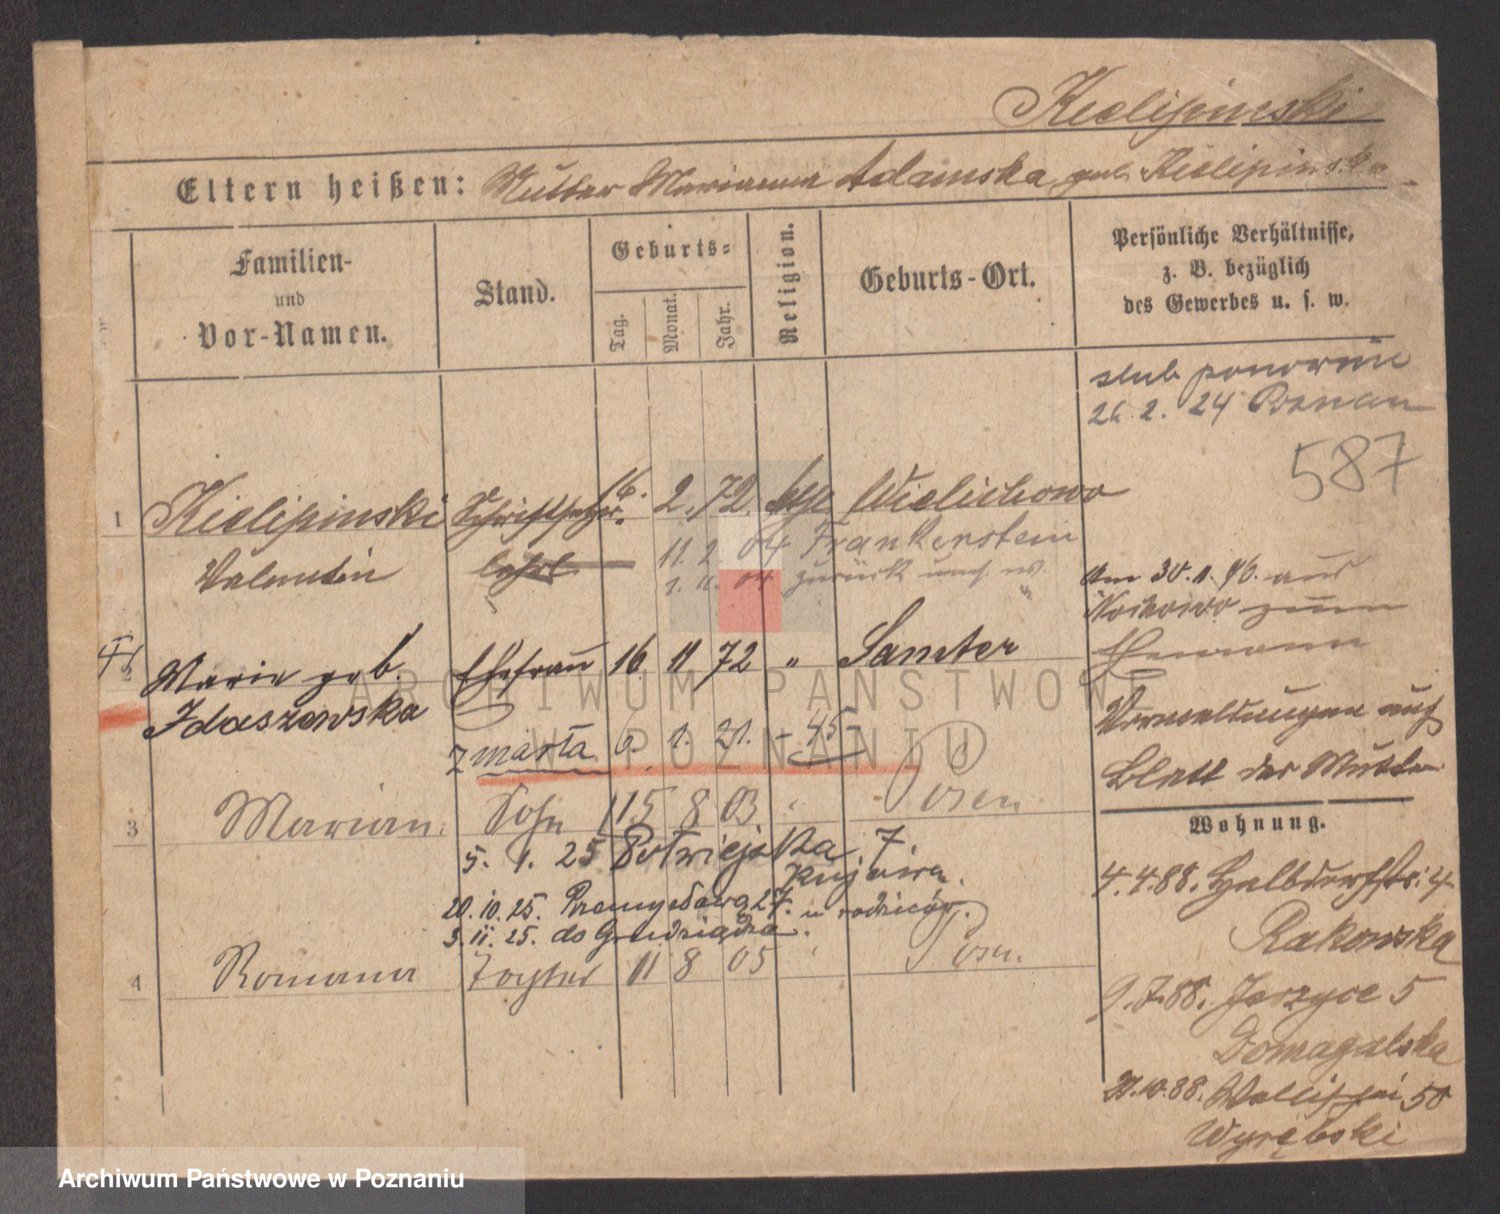 Kielipinski
Eltern heißen: Mutter Marianna Adamska geb. Kielipinska
Familien-
und
Vor-Namen.
Stand.
Geburts-
Tag.
Monat.
Jahr.
Religion.
Geburts-Ort.
Persönliche Verhältnisse,
z. B. bezüglich
des Gewerbes u. s. w.
ślub ponownie
26. 2. 24 Poznań
587
1 Kielipinski Schriftsetzer 16. 2. 72. Wielichowo
Valentin lehrl. 11. 2. 04 Frankenstein
1. 11. 04 zurück
Am 30. 11. 96. aus
zum
Ehemann
2 Marie geb. Ehefrau 16 11 72 " Samter
Idaszewska
z marła 6. 1. 21. - 45
Vermeldungen auf
Blatt der Mutter
3 Marian Sohn 15 8 03 " Posen
5. 1. 25 Półwiejska 7
Kujawa.
20. 10. 25. Przemysława 27. u rodziców.
3. 11. 25. do Grudziądza.
4 Romana Tochter 11 8 05 " Posen.
Wohnung.
4. 4. 88. Halbdorfstr. 4
Rakowska
9. 7. 88. Jerzyce 5
Domagalska
21. 10. 88. Wallischei 50
Wyrębski
ARCHIWUM PAŃSTWOWE
W POZNANIU
Archiwum Państwowe w Poznaniu